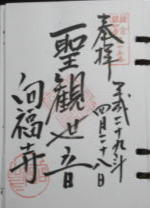 奉拝
平成二十九年
四月二十八日
聖観世音
向福寺